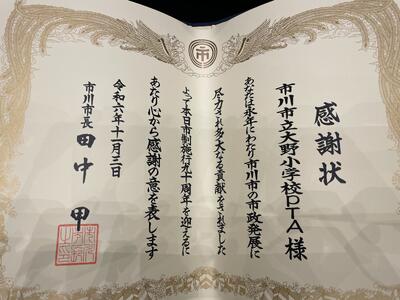 感謝状
市川市立大野小学校PTA 様
あなたは永年にわたり市川市の市政発展に
尽力され多大なる貢献をされました
よって本日市制施行九十周年を迎えるに
あたり心から感謝の意を表します
令和六年十一月三日
市川市長 田中 甲